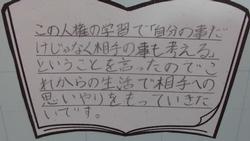 この人権の学習で「自分の事だ
けじゃなく相手の事も考える」
ということを言ったのでこ
れからの生活で相手への
思いやりをもっていきた
いです。